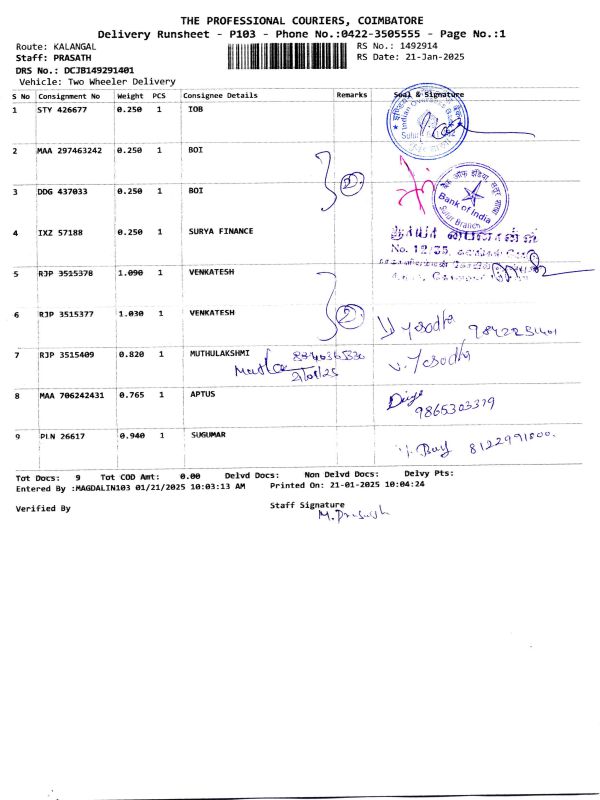 THE PROFESSIONAL COURIERS, COIMBATORE
Delivery Runsheet - P103 - Phone No.:0422-3505555 - Page No.:1
Route: KALANGAL RS No.: 1492914
Staff: PRASATH RS Date: 21-Jan-2025
DRS No.: DCJB149291401
Vehicle: Two Wheeler Delivery
S No Consignment No Weight PCS Consignee Details Remarks Seal & Signature
1 STY 426677 0.250 1 IOB
Indian Overseas Bank
2 MAA 297463242 0.250 1 BOI
3 DDG 437033 0.250 1 BOI 2
Bank of India
Sulur Branch
4 IXZ 57188 0.250 1 SURYA FINANCE
No. 12/35,
5 RJP 3515378 1.090 1 VENKATESH
6 RJP 3515377 1.030 1 VENKATESH 2
V Yesodha 9842231401
7 RJP 3515409 0.820 1 MUTHULAKSHMI
V. Yesodha
8 MAA 706242431 0.765 1 APTUS
9865303379
9 PLN 26617 0.940 1 SUGUMAR
8122991800.
Tot Docs: 9 Tot COD Amt: 0.00 Delvd Docs: Non Delvd Docs: Delvy Pts:
Entered By :MAGDALIN103 01/21/2025 10:03:13 AM Printed On: 21-01-2025 10:04:24
Verified By Staff Signature
M. Prasath